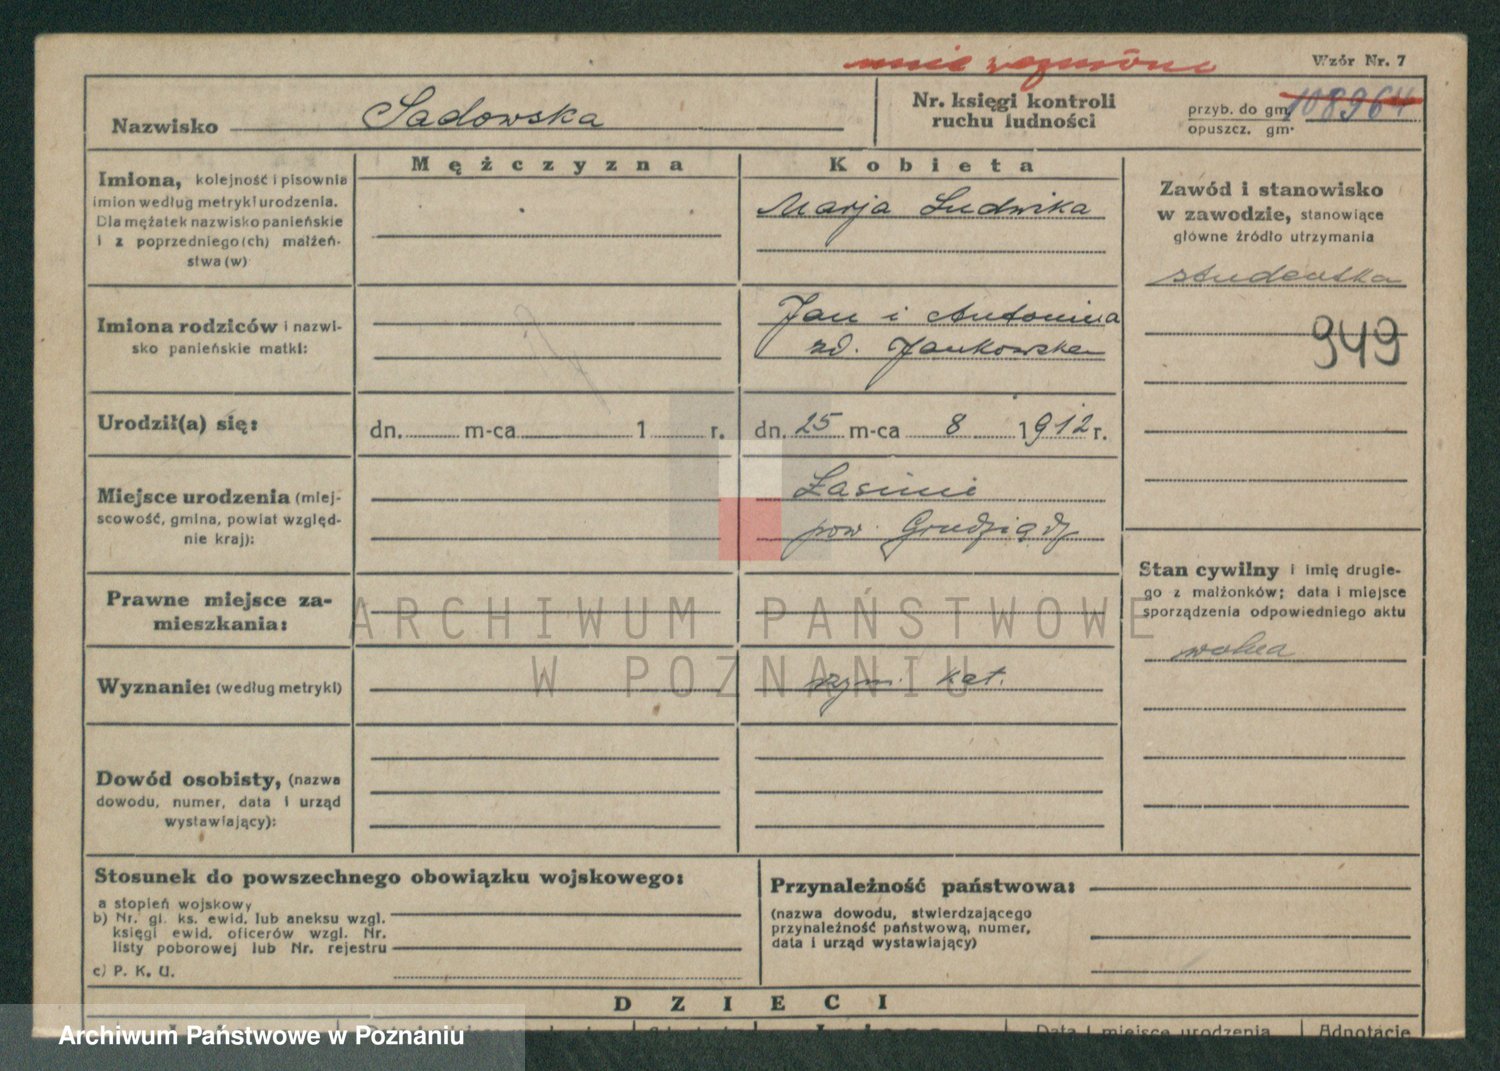 Wzór Nr. 7
Nazwisko Sadowska
Nr. księgi kontroli
ruchu ludności
przyb. do gm. 108964
opuszcz. gm.
Mężczyzna
Kobieta
Imiona, kolejność i pisownia
imion według metryki urodzenia.
Dla mężatek nazwisko panieńskie
i z poprzedniego(ch) małżeń-
stwa(w)
Marja Ludwika
Zawód i stanowisko
w zawodzie, stanowiące
główne źródło utrzymania
studentka
949
Imiona rodziców i nazwi-
sko panieńskie matki:
Jan i Antonina
zd. Jankowska
Urodził(a) się:
dn. m-ca 1 r.
dn. 25 m-ca 8 1912 r.
Miejsce urodzenia (miej-
scowość, gmina, powiat względ-
nie kraj):
Łasinie
pow. Grudziądz
Prawne miejsce za-
mieszkania:
Stan cywilny i imię drugie-
go z małżonków; data i miejsce
sporządzenia odpowiedniego aktu
wolna
Wyznanie: (według metryki)
rzym. kat.
Dowód osobisty, (nazwa
dowodu, numer, data i urząd
wystawiający):
Stosunek do powszechnego obowiązku wojskowego:
a stopień wojskowy
b) Nr. gl. ks. ewid. lub aneksu wzgl.
księgi ewid. oficerów wzgl. Nr.
listy poborowej lub Nr. rejestru
c) P. K. U.
Przynależność państwowa:
(nazwa dowodu, stwierdzającego
przynależność państwową, numer,
data i urząd wystawiający)
DZIECI
Data i miejsce urodzenia
Adnotacje
ARCHIWUM PAŃSTWOWE
W POZNANIU
Archiwum Państwowe w Poznaniu